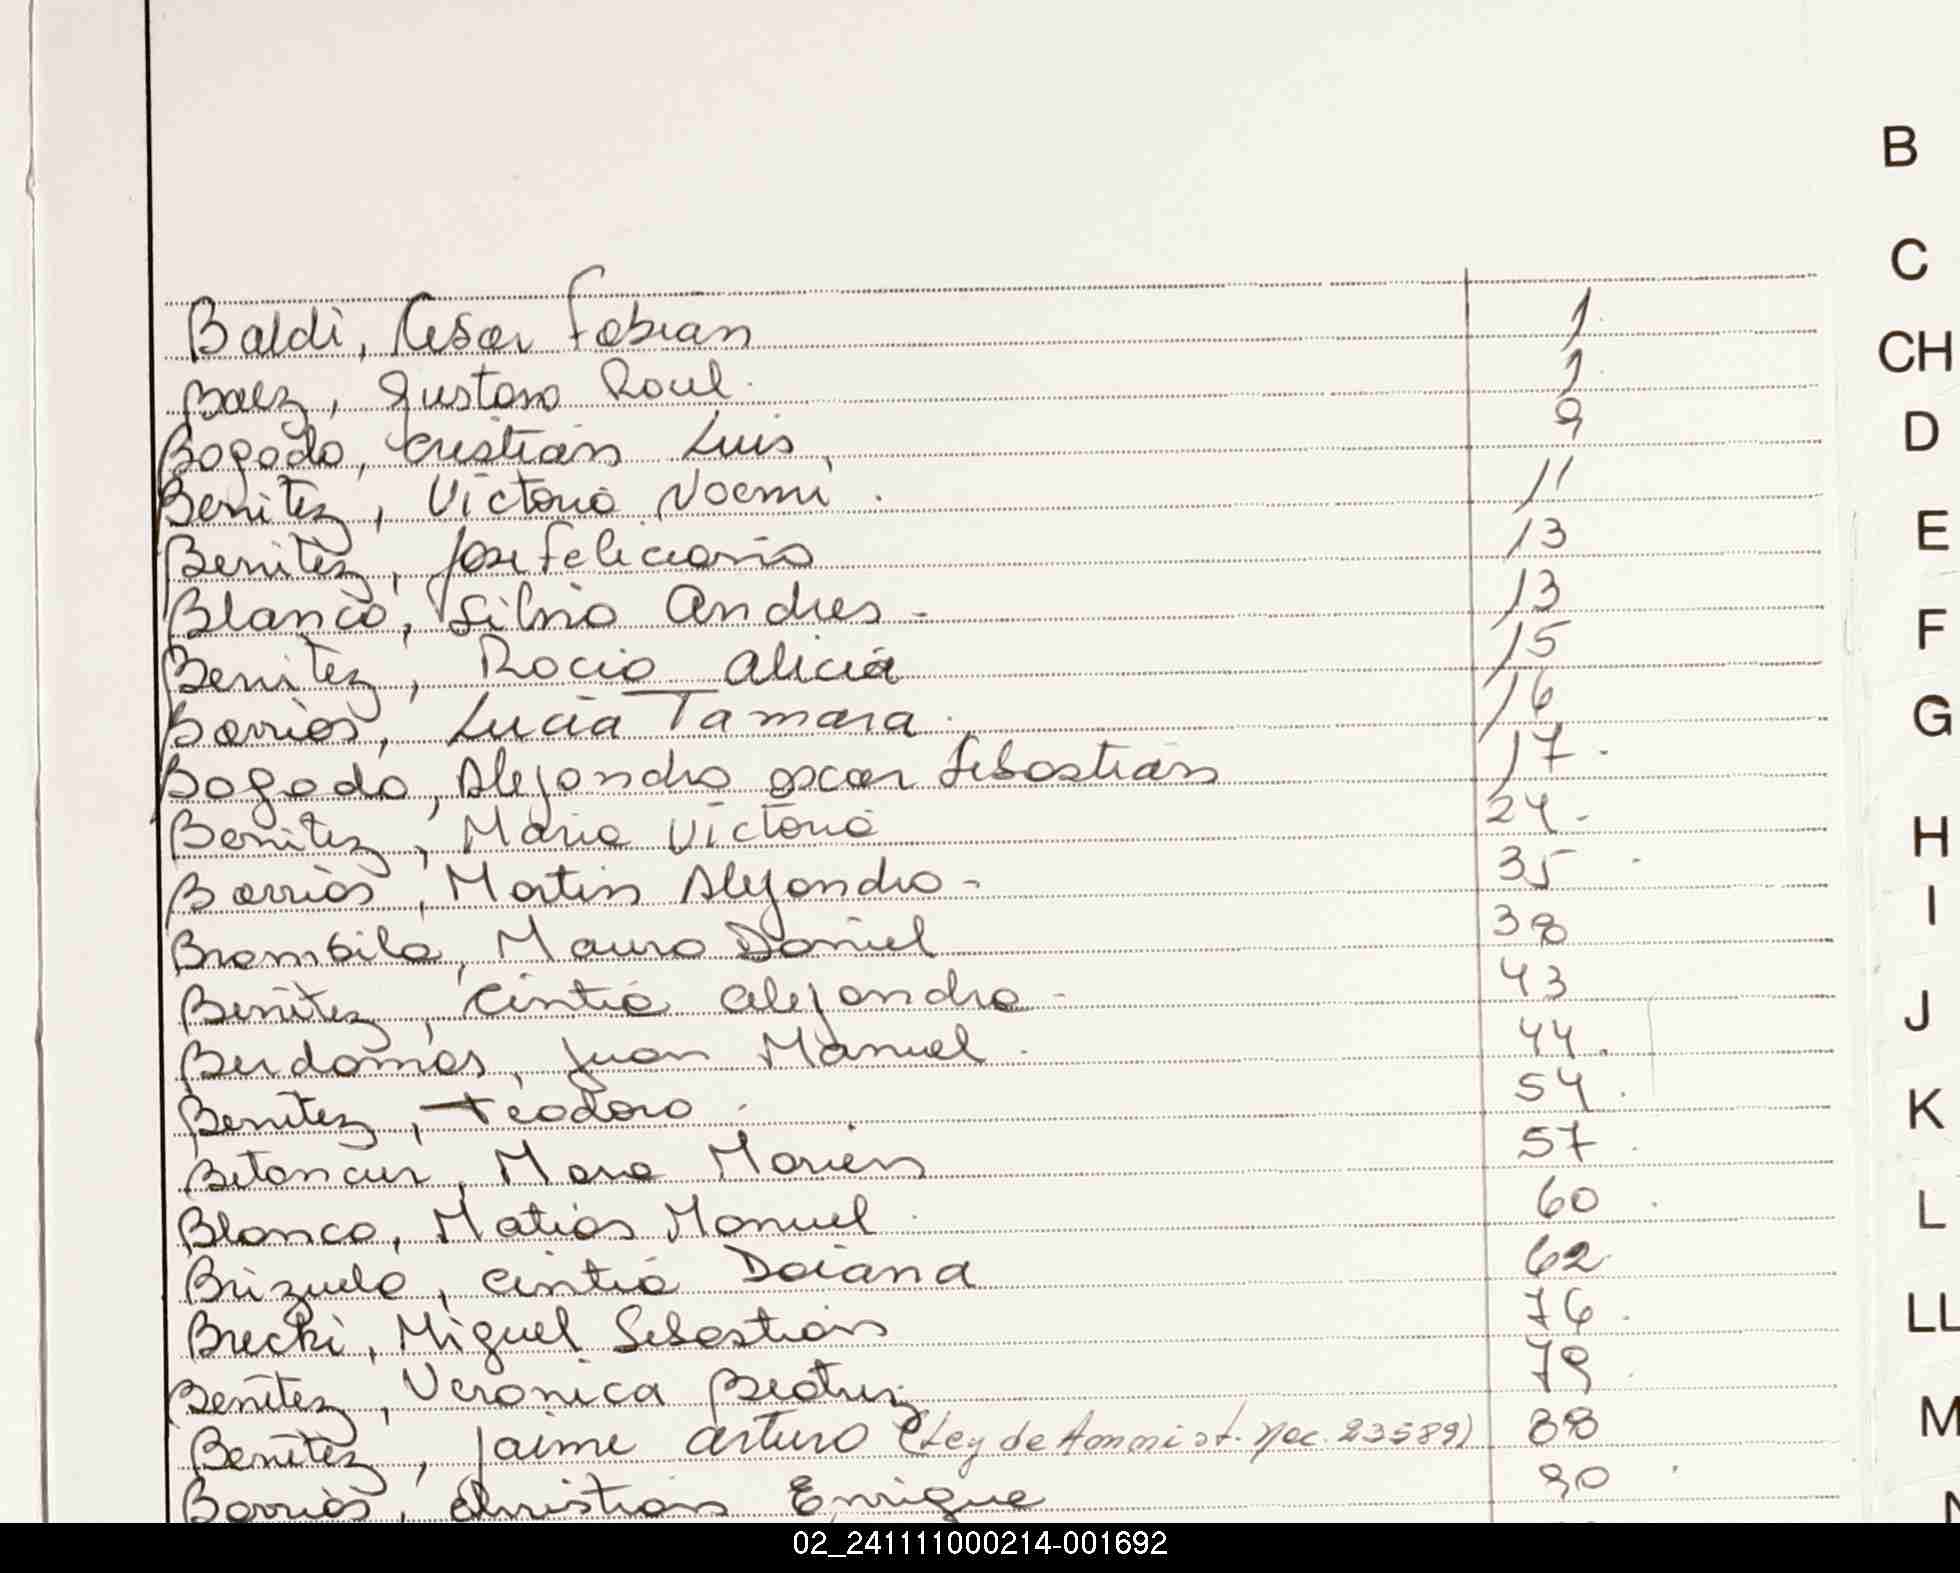 B
C
CH
D
E
F
G
H
I
J
K
L
LL
M
Baldi, Cesar Fabian 1.
Baez, Gustavo Raul. 1.
Bogado, Cristian Luis, 9
Benitez, Victoria Noemi. 11
Benitez, Jose Feliciano 13
Blanco, Silvio Andres - 13
Benitez, Rocio Alicia 15
Barrios, Lucia Tamara. 16
Bogado, Alejandro Oscar Sebastian 17.
Benitez, Maria Victoria 24.
Barrios, Martin Alejandro - 35
Brambila, Mauro Daniel 38
Benitez, Cintia Alejandra - 43
Berdomas, Juan Manuel. 44.
Benitez, Teodoro. 54.
Betancur, Mara Marien 57
Blanco, Matias Manuel 60
Brizuela, Cintia Daiana 62
Brecki, Miguel Sebastian 76.
Benitez, Veronica Beatriz 79
Benitez, Jaime Arturo (Ley de Ammist. Nac. 23589) 88
Barrios, Christian Enrique 90
02_241111000214-001692